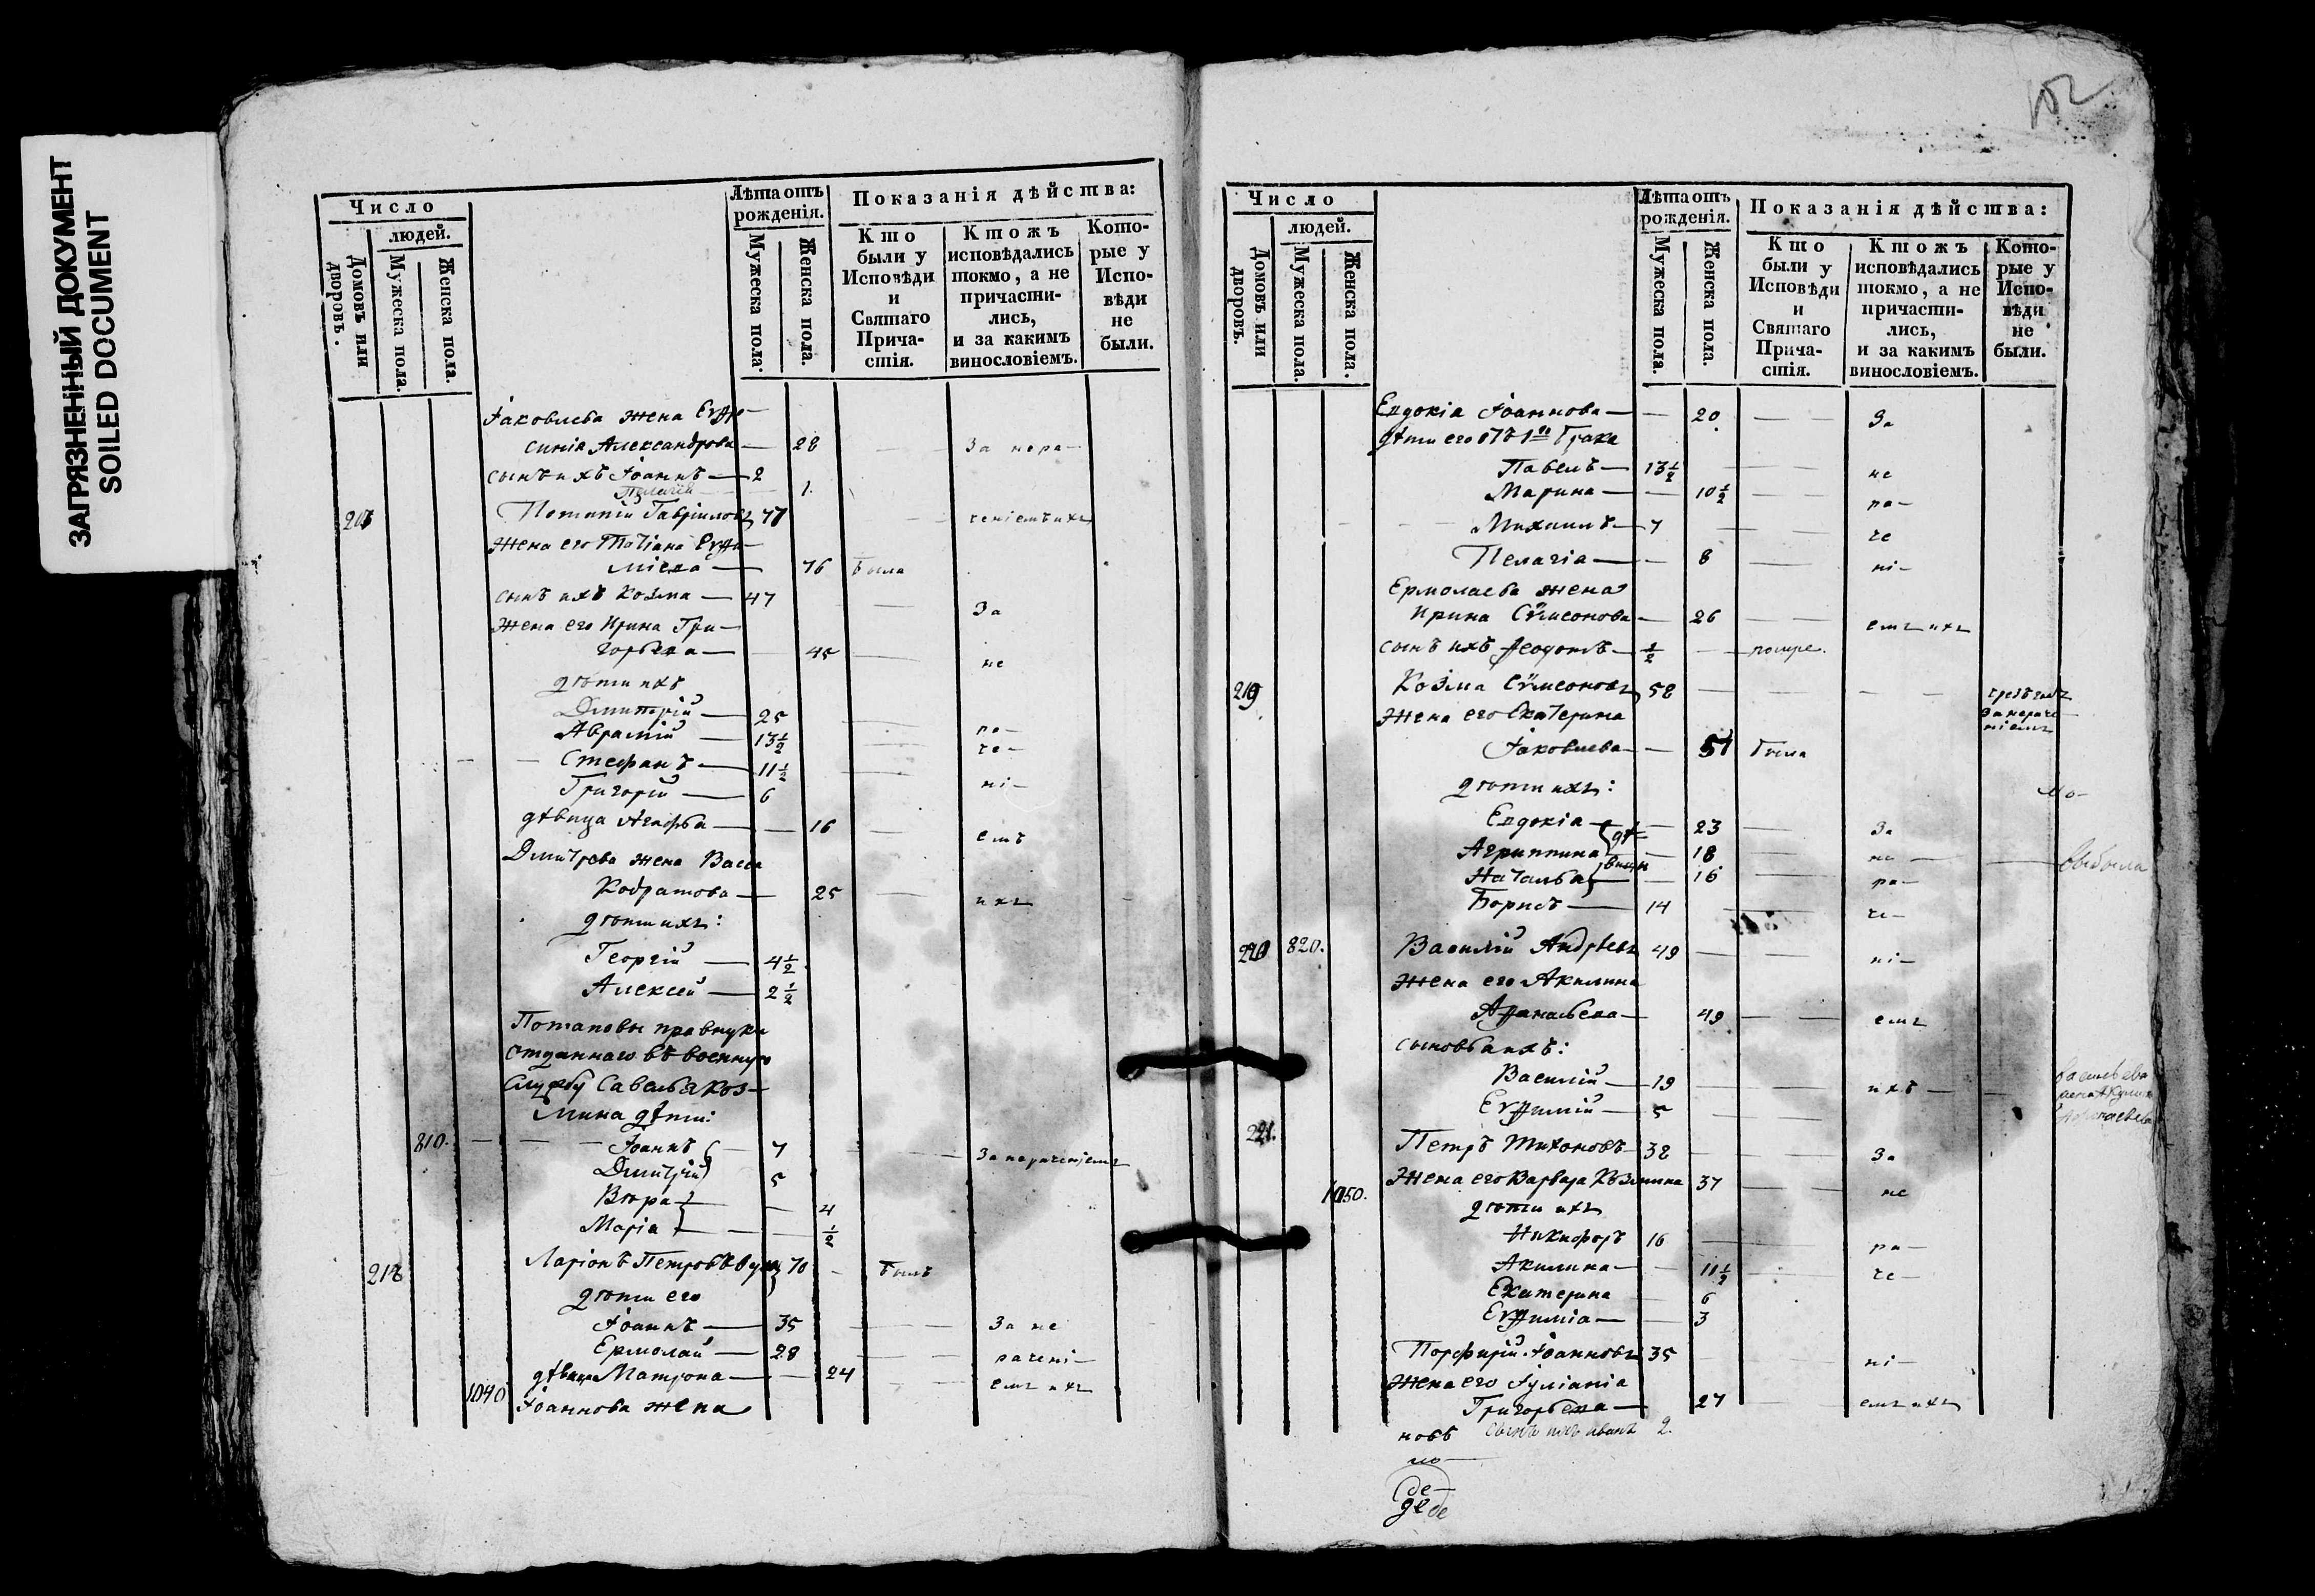 ЗАГРЯЗНЕННЫЙ ДОКУМЕНТ
SOILED DOCUMENT
Число
людей.
Домовъ или дворовъ.
Мужеска пола.
Женска пола.
Лѣта отъ рожденія.
Мужеска пола.
Женска пола.
Показанія дѣйства:
Кто были у Исповѣди и Святаго Причастія.
Ктожъ исповѣдались токмо, а не причастились, и за какимъ винословіемъ.
Которые у Исповѣди не были.
Іаковлева жена Евфро-
синія Александрова — 28 За нера-
сынъ ихъ Іоаннъ — 2
Пелагія 1
Потапій Гавріиловъ 77 ченіемъ ихъ
жена его Татіана Евфи-
міева — 76 была
сынъ ихъ Козма — 47 За
жена его Ирина Гри-
горьева — 45 не
дѣти ихъ
Димитрій — 25 ра-
Аврамій — 13½ че-
Стефанъ — 11½
Григорій — 6 ні-
дѣвица Агафья — 16 емъ
Дмитрева жена Васса
Кодратова — 25 ихъ
дѣти ихъ:
Георгій — 4½
Алексей — 2½
Потаповы правнуки
отданнаго въ военную
службу Савелья Коз-
мина дѣти:
810. Іоаннъ 7 За нераченіемъ
Дмитрій 5
Вѣра 4
Марія ½
218 Ларіонъ Петровъ 70 былъ
дѣти его
Іоаннъ — 35 За не
Ермолай — 28 рачені-
дѣвица Матрона — 24 емъ ихъ
1040 Іоаннова жена
152
Число
людей.
Домовъ или дворовъ.
Мужеска пола.
Женска пола.
Лѣта отъ рожденія.
Мужеска пола.
Женска пола.
Показанія дѣйства:
Кто были у Исповѣди и Святаго Причастія.
Ктожъ исповѣдались токмо, а не причастились, и за какимъ винословіемъ.
Которые у Исповѣди не были.
Евдокіа Іоаннова — 20 За
дѣти его отъ 1го брака
Павелъ — 13½ не
Марина — 10½ ра-
Михаилъ — 7 че
Пелагіа — 8 ні-
Ермолаева жена
Ирина Сѵмеонова — 26 емъ ихъ
сынъ ихъ Ѳеодотъ — ½ помре.
219 Козма Сѵмеоновъ 58
за нераче-
ніемъ
жена его Екатерина
Іаковлева — 51 была
дѣти ихъ:
Евдокіа — 23 За
Агриппина дѣ- 18 не — выбыла
Наталья вицы 16 ра-
Борисъ — 14 че-
220 820. Василій Андреевъ 49 ні-
жена его Акилина
Аѳанасьева — 49 емъ
сыновья ихъ:
Василій — 19 ихъ
Евфимій — 5
221. Петръ Тихоновъ 38 За
1050. Жена его Варвара Козмина 37 не
дѣти ихъ
Никифоръ 16 ра-
Акилина — 11½ че-
Екатерина 6
Евфиміа — 3
Порфирій Іоанновъ 35 ні-
жена его Іуліаніа
Григорьева — 27 емъ ихъ
новъ сынъ ихъ Иванъ 2.
мо-
де-